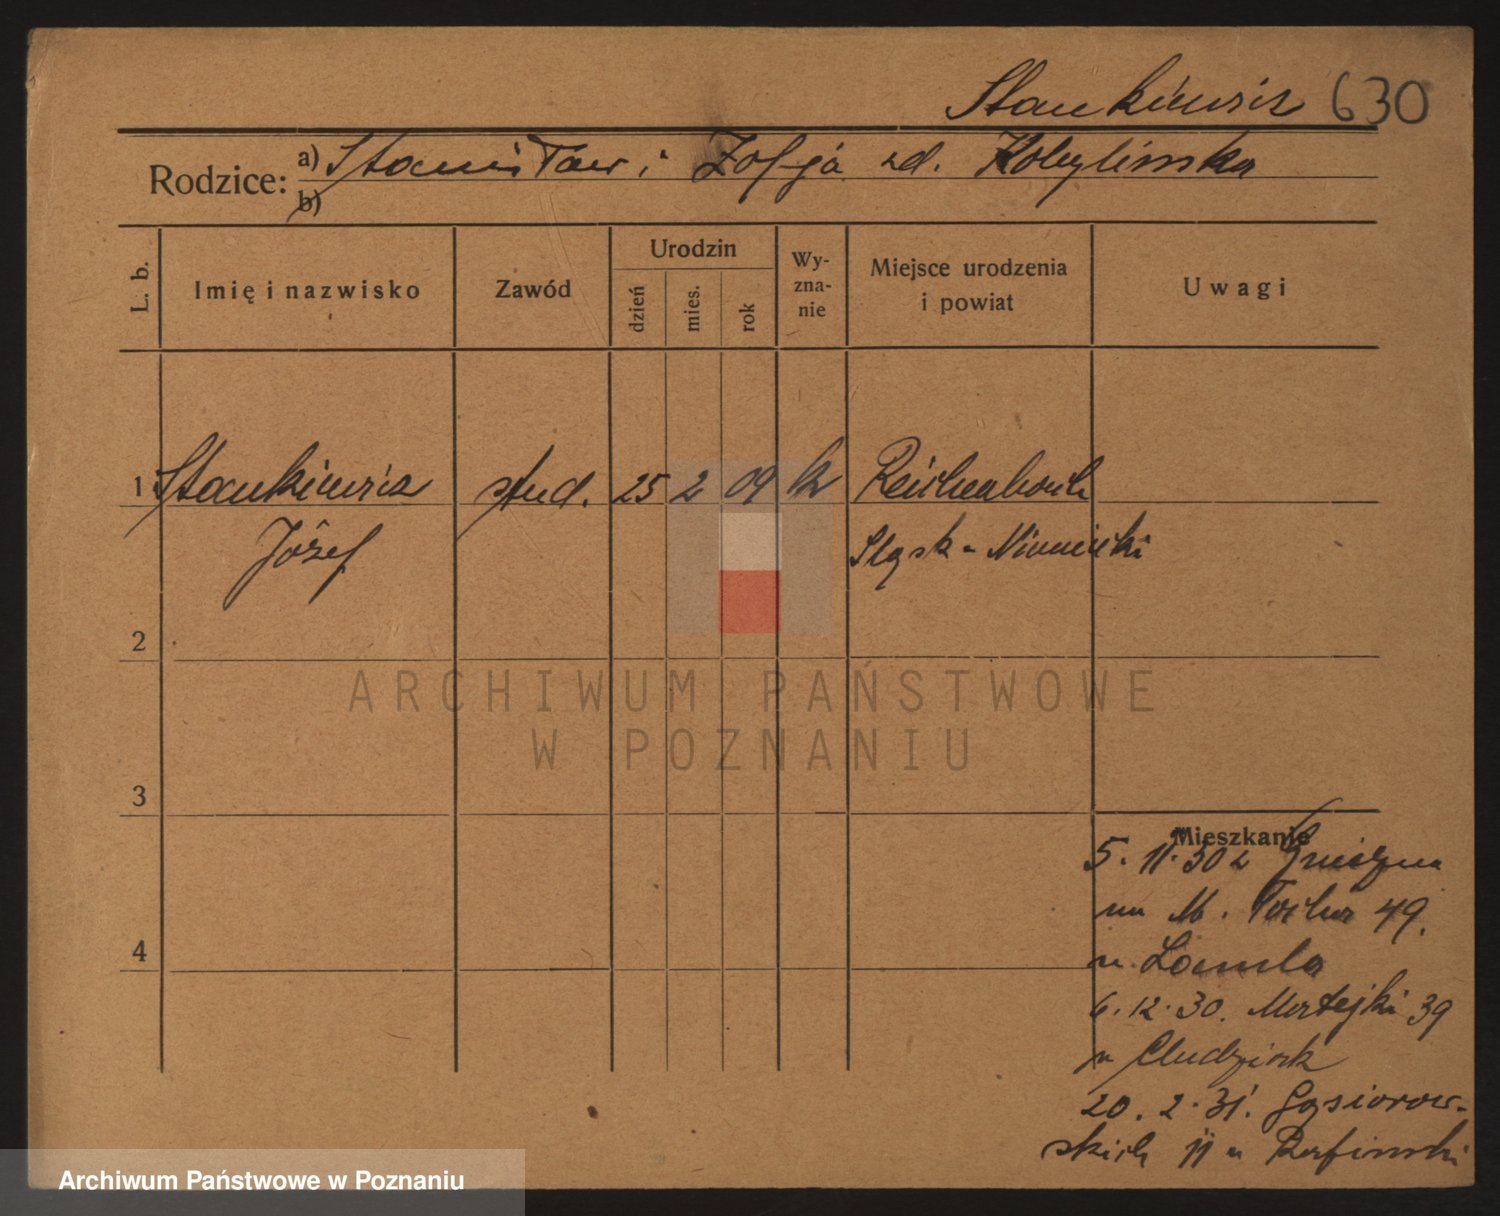 Stankiewicz 630
Rodzice: a) Stanisław i Zofja zd. Kobylinska
b)
L. b. Imię i nazwisko Zawód Urodzin dzień mies. rok Wy-zna-nie Miejsce urodzenia i powiat Uwagi
1 Stankiewicz stud. 25 2 09 k Reichenbach
Józef Sląsk - Niemiecki
2
ARCHIWUM PAŃSTWOWE
W POZNANIU
3
Mieszkanie
5. 11. 30 z Gniezna
na M. Focha 49.
4
u
6. 12. 30. Matejki 39
u
20. 2. 31. Gąsiorow-
skich 11 u
Archiwum Państwowe w Poznaniu